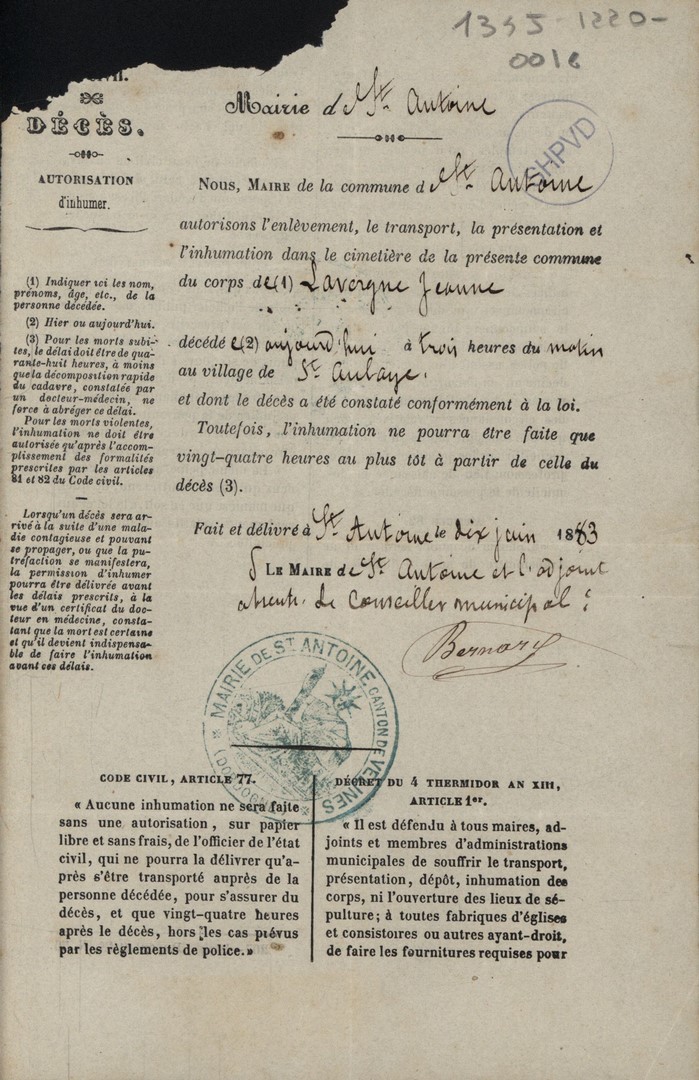 1345-1220-
0016
DÉCÈS.
AUTORISATION
d'inhumer.
(1) Indiquer ici les nom,
prénoms, âge, etc., de la
personne décédée.
(2) Hier ou aujourd'hui.
(3) Pour les morts subi-
tes, le délai doit être de qua-
rante-huit heures, à moins
que la décomposition rapide
du cadavre, constatée par
un docteur-médecin, ne
force à abréger ce délai.
Pour les morts violentes,
l'inhumation ne doit être
autorisée qu'après l'accom-
plissement des formalités
prescrites par les articles
81 et 82 du Code civil.
Lorsqu'un décès sera ar-
rivé à la suite d'une mala-
die contagieuse et pouvant
se propager, ou que la pu-
tréfaction se manifestera,
la permission d'inhumer
pourra être délivrée avant
les délais prescrits, à la
vue d'un certificat du doc-
teur en médecine, consta-
tant que la mort est certaine
et qu'il devient indispensa-
ble de faire l'inhumation
avant ces délais.
Mairie de St. Antoine
SHPVD
Nous, MAIRE de la commune de St. Antoine
autorisons l'enlèvement, le transport, la présentation et
l'inhumation dans le cimetière de la présente commune
du corps de (1) Lavergne Jeanne
décédé e (2) aujourd'hui à trois heures du matin
au village de St. Aulaye.
et dont le décès a été constaté conformément à la loi.
Toutefois, l'inhumation ne pourra être faite que
vingt-quatre heures au plus tôt à partir de celle du
décès (3).
Fait et délivré à St. Antoine le dix juin 1883
LE MAIRE de St. Antoine et l'adjoint
Le Conseiller municipal
Bernard
MAIRIE DE ST ANTOINE
CANTON DE VELINES
CODE CIVIL, ARTICLE 77.
« Aucune inhumation ne sera faite
sans une autorisation, sur papier
libre et sans frais, de l'officier de l'état
civil, qui ne pourra la délivrer qu'a-
près s'être transporté auprès de la
personne décédée, pour s'assurer du
décès, et que vingt-quatre heures
après le décès, hors les cas prévus
par les règlements de police. »
DÉCRET DU 4 THERMIDOR AN XIII,
ARTICLE 1er.
« Il est défendu à tous maires, ad-
joints et membres d'administrations
municipales de souffrir le transport,
présentation, dépôt, inhumation des
corps, ni l'ouverture des lieux de sé-
pulture; à toutes fabriques d'églises
et consistoires ou autres ayant-droit,
de faire les fournitures requises pour